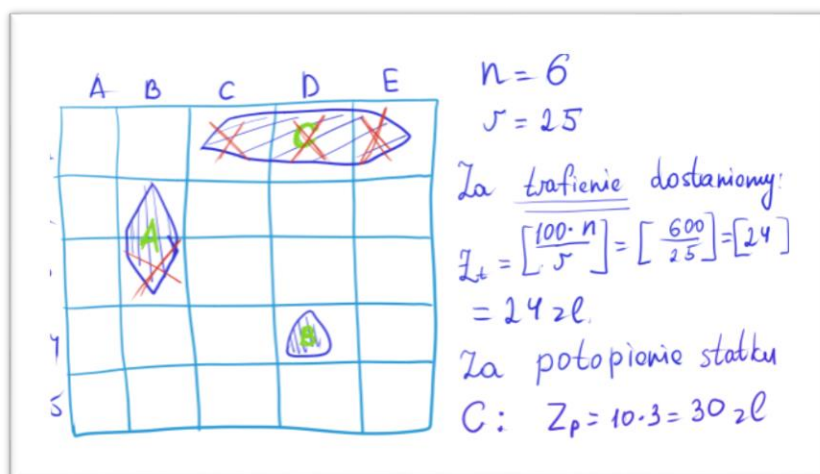 A B C D E
C
A
B
4
5
n = 6
r = 25
Za trafienie dostaniemy:
Z_t = [100·n / r] = [600 / 25] = [24]
= 24 zł.
Za potopienie statku
C: Z_p = 10·3 = 30 zł